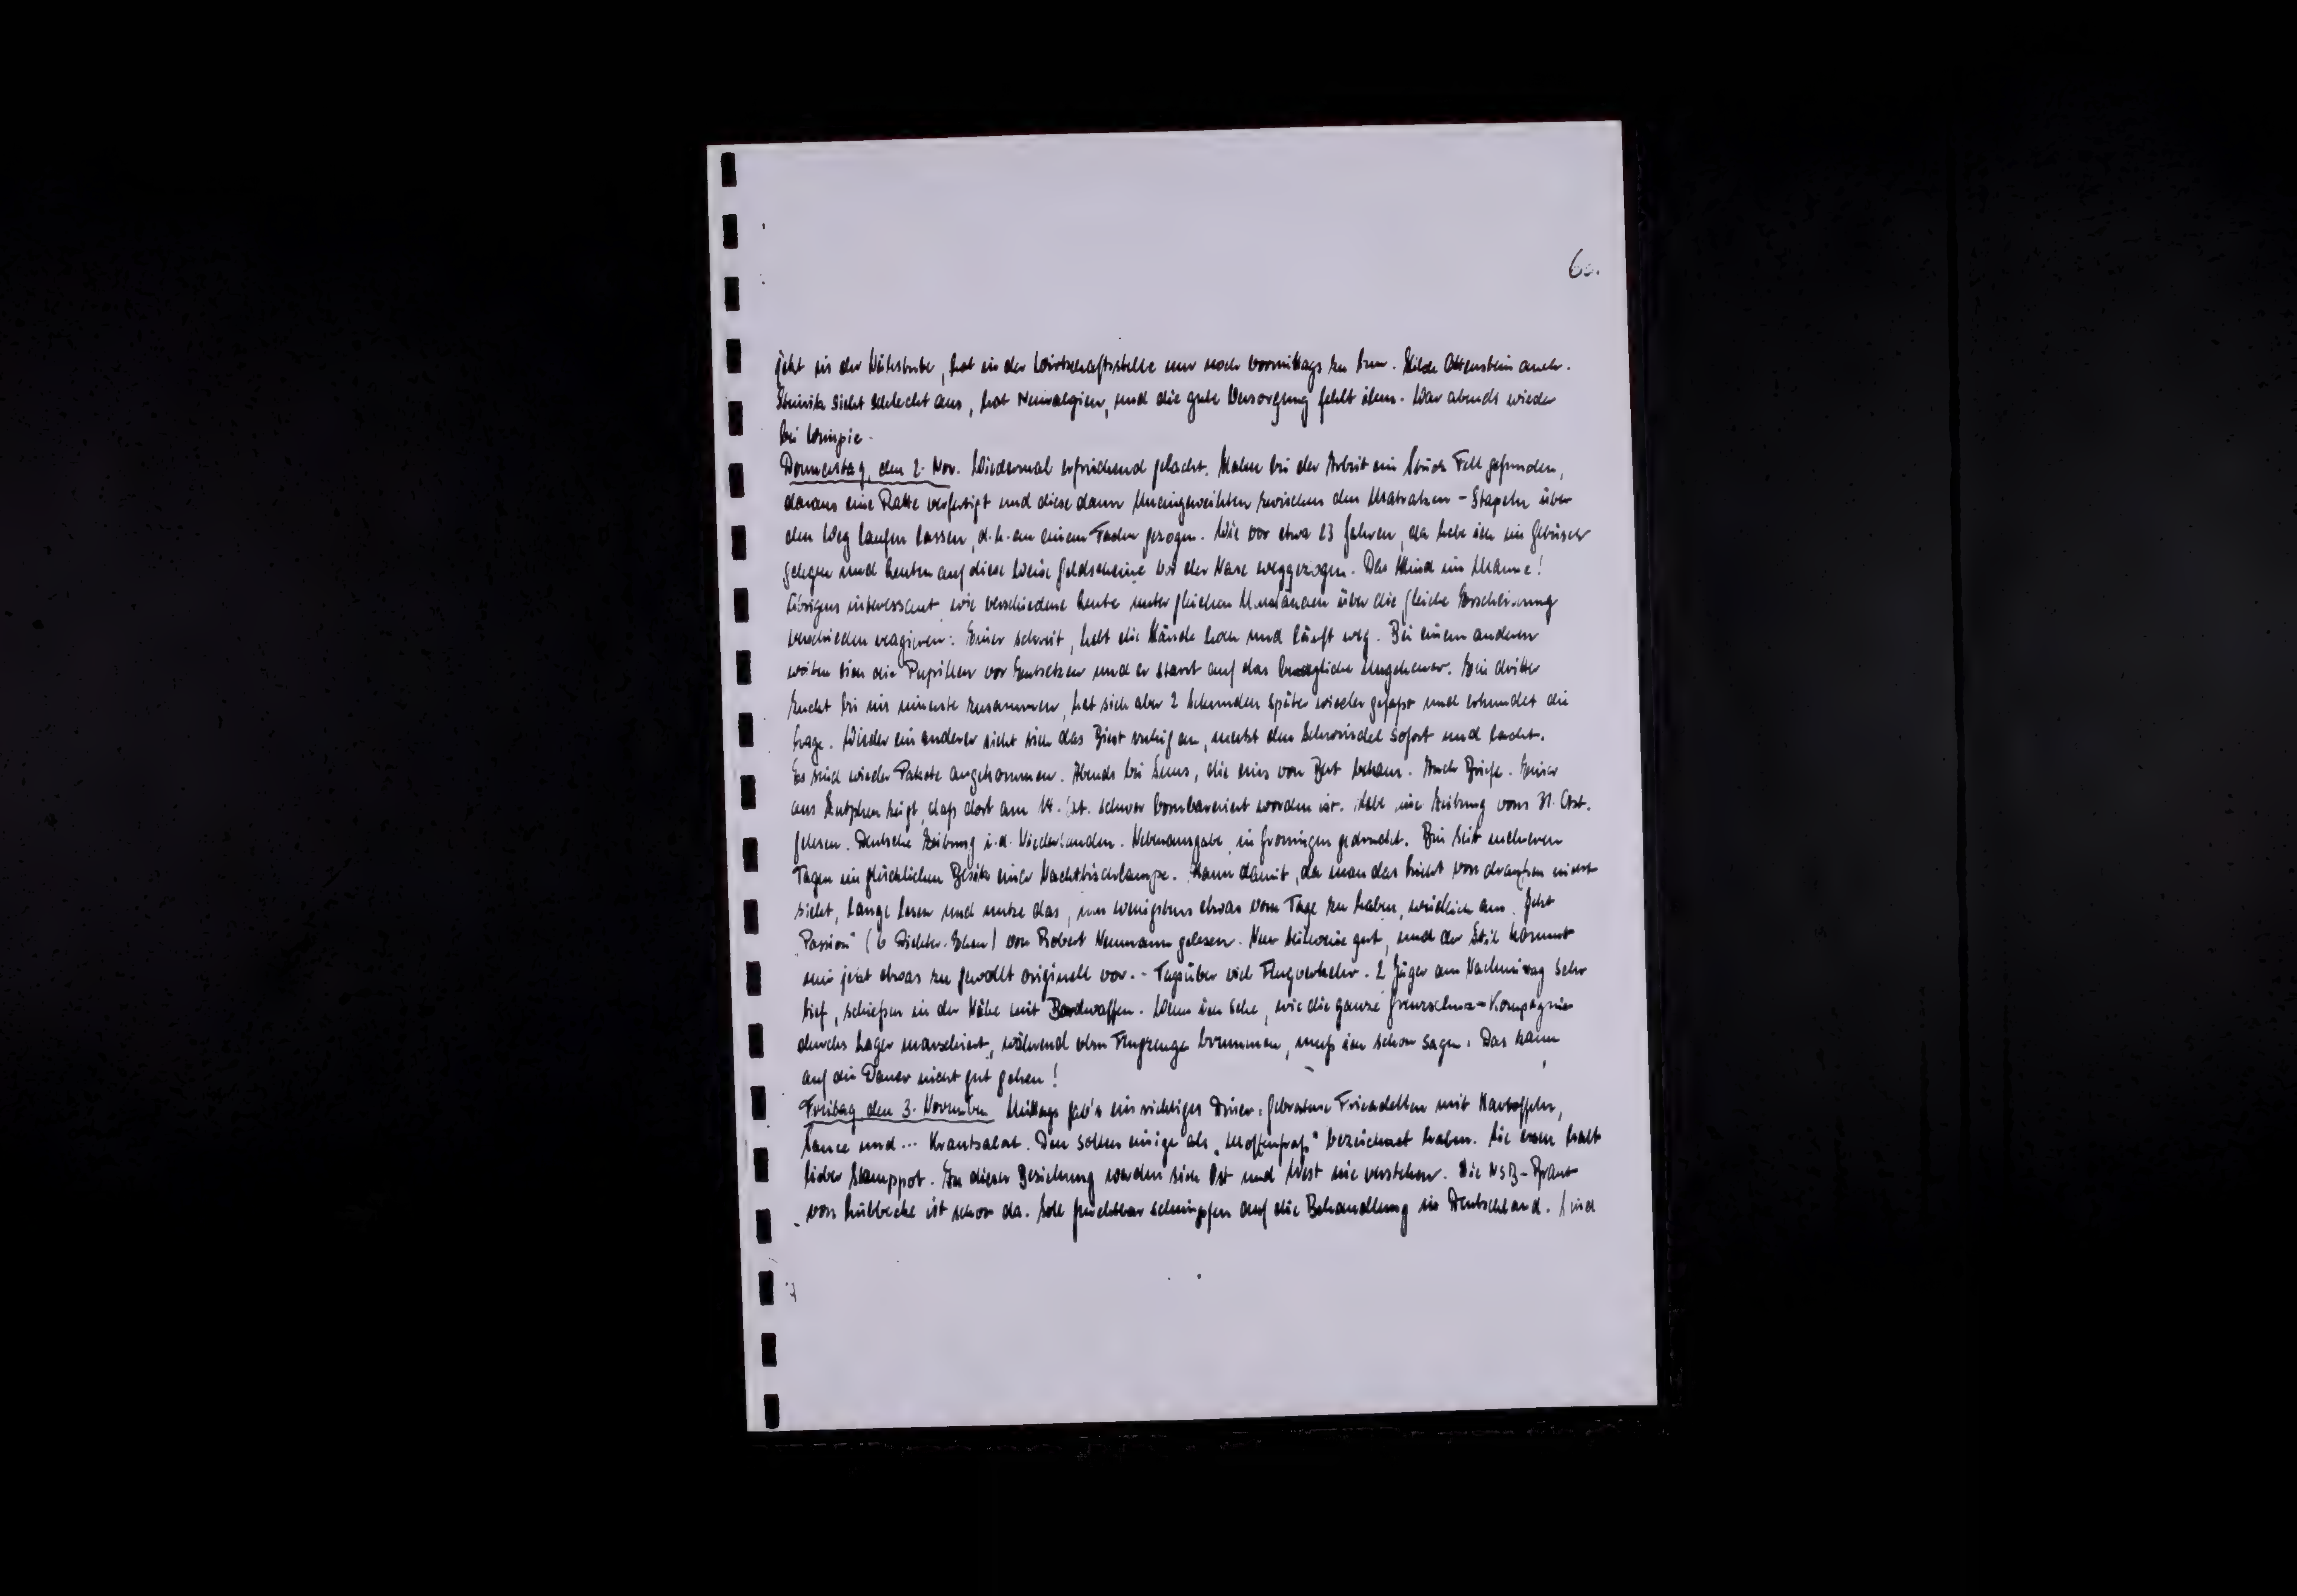 60.
jetzt in der Nähstube, hat in der Wirtschaftsstelle nur noch vormittags zu tun. Hilde Ottenstein auch.
sieht schlecht aus, hat Neuralgien, und die gute Versorgung fehlt ihm. War abends wieder
bei
Donnerstag, den 2. Nov. Wiedermal erfrischend gelacht. Haben bei der Arbeit ein Stück Fell gefunden,
daraus eine Ratte verfertigt und diese dann Uneingeweihten zwischen den Matratzen-Stapeln über
den Weg laufen lassen, d.h. an einem Faden gezogen. Wie vor etwa 23 Jahren, da habe ich im Gebüsch
gelegen und Leuten auf diese Weise Geldscheine vor der Nase weggezogen. Das Kind im Manne!
Übrigens interessant, wie verschiedene Leute unter gleichen Umständen über die gleiche Erscheinung
verschieden reagieren: Einer schreit, hebt die Hände hoch und läuft weg. Bei einem anderen
weiten sich die Pupillen vor Entsetzen und er starrt auf das bewegliche Ungeheuer. Ein dritter
zuckt bis ins innerste zusammen, hat sich aber 2 Sekunden später wieder gefaßt und erkundet die
Lage. Wieder ein anderer sieht sich das Biest ruhig an, merkt den Schwindel sofort und lacht.
Es sind wieder Pakete angekommen. Abends bei die eins von bekam. Auch Briefe. Einer
aus Zutphen zeigt, daß dort am 14. Okt. schwer bombardiert worden ist. Habe eine Zeitung vom 31. Okt.
gelesen. Deutsche Zeitung i.d. Niederlanden. Nebenausgabe, in Groningen gedruckt. Bin seit mehreren
Tagen im glücklichen Besitz einer Nachttischlampe. Kann damit, da man das Licht von draußen nicht
sieht, lange lesen und nutze das, um wenigstens etwas vom Tage zu haben, weidlich aus. Jetzt
"Passion" (6 Dichter-Ehen) von Robert Neumann gelesen. Nur teilweise gut, und der Stil kommt
mir jetzt etwas zu gewollt originell vor. - Tagsüber viel Flugverkehr. 2 Jäger am Nachmittag sehr
tief, schießen in der Nähe mit Bordwaffen. Wenn ich sehe, wie die ganze Grenzschutz-Kompagnie
durchs Lager marschiert, während oben Flugzeuge brummen, muß ich schon sagen: Das kann
auf die Dauer nicht gut gehen!
Freitag den 3. November Mittags gab's ein richtiges Diner: gebratene Fricadellen mit Kartoffeln,
Sauce und ... Krautsalat. Den sollen einige als "Moffenfraß" bezeichnet haben. Sie essen halt
lieber Stamppot. In dieser Beziehung werden sich Ost und West nie verstehen. Die NSB-
von Lübbecke ist schon da. Soll furchtbar schimpfen auf die Behandlung in Deutschland. Sind